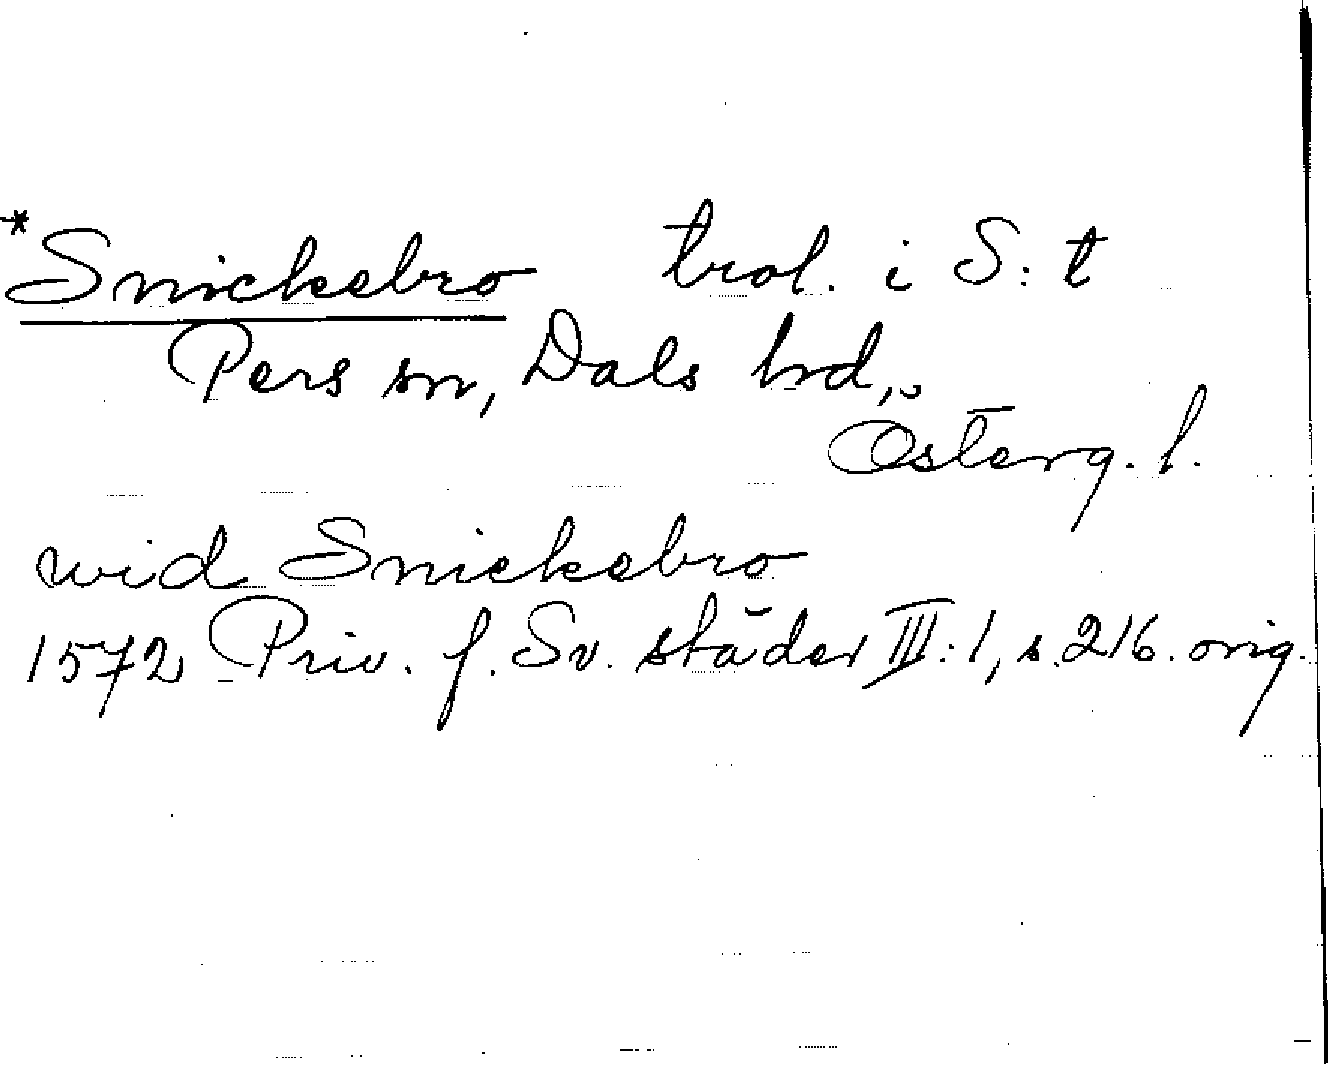 *Snickebro trol. i S:t
Pers sn, Dals hrd,
Österg. l.
wid Snickebro
1572 Priv. f. Sv. städer III:1, s. 216. orig.